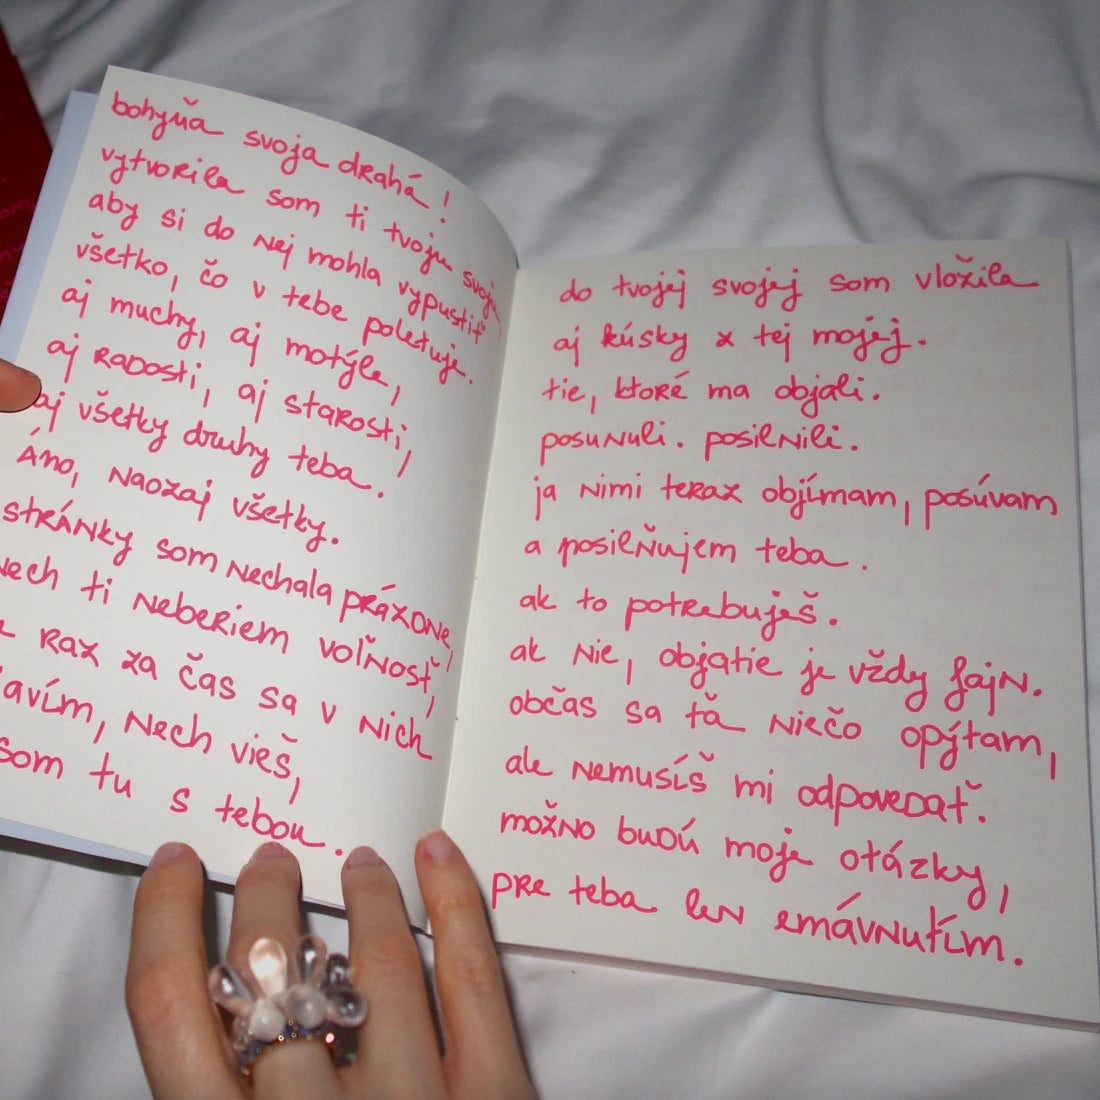 bohyňa svoja drahá!
vytvorila som ti tvoju svoju,
aby si do nej mohla vypustiť
všetko, čo v tebe poletuje.
aj muchy, aj motýle,
aj radosti, aj starosti,
aj všetky druhy teba.
áno, naozaj všetky.
stránky som nechala prázdne,
nech ti neberiem voľnosť,
raz za čas sa v nich
avím, nech vieš,
som tu s tebou.
do tvojej svojej som vložila
aj kúsky z tej mojej.
tie, ktoré ma objali.
posunuli. posilnili.
ja nimi teraz objímam, posúvam
a posilňujem teba.
ak to potrebuješ.
ak nie, objatie je vždy fajn.
občas sa ťa niečo opýtam,
ale nemusíš mi odpovedať.
možno budú moje otázky,
pre teba len zmávnutím.